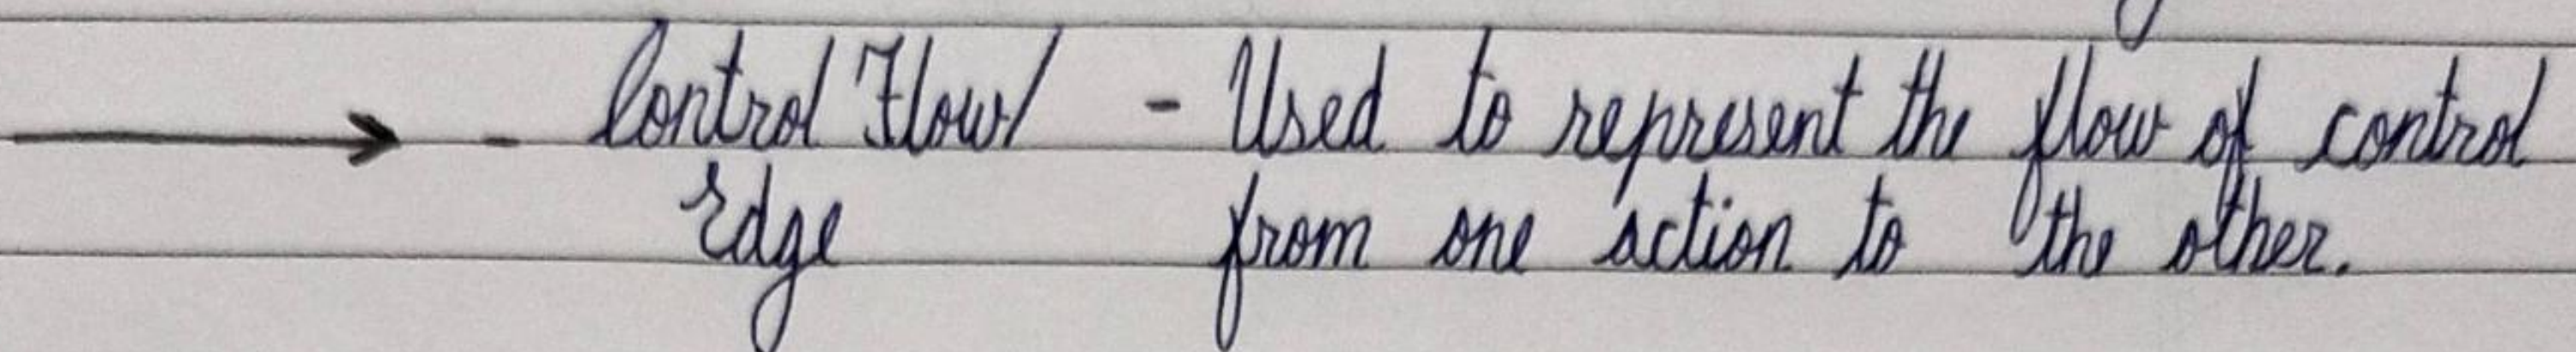 → - Control Flow/ - Used to represent the flow of control
Edge from one action to the other.